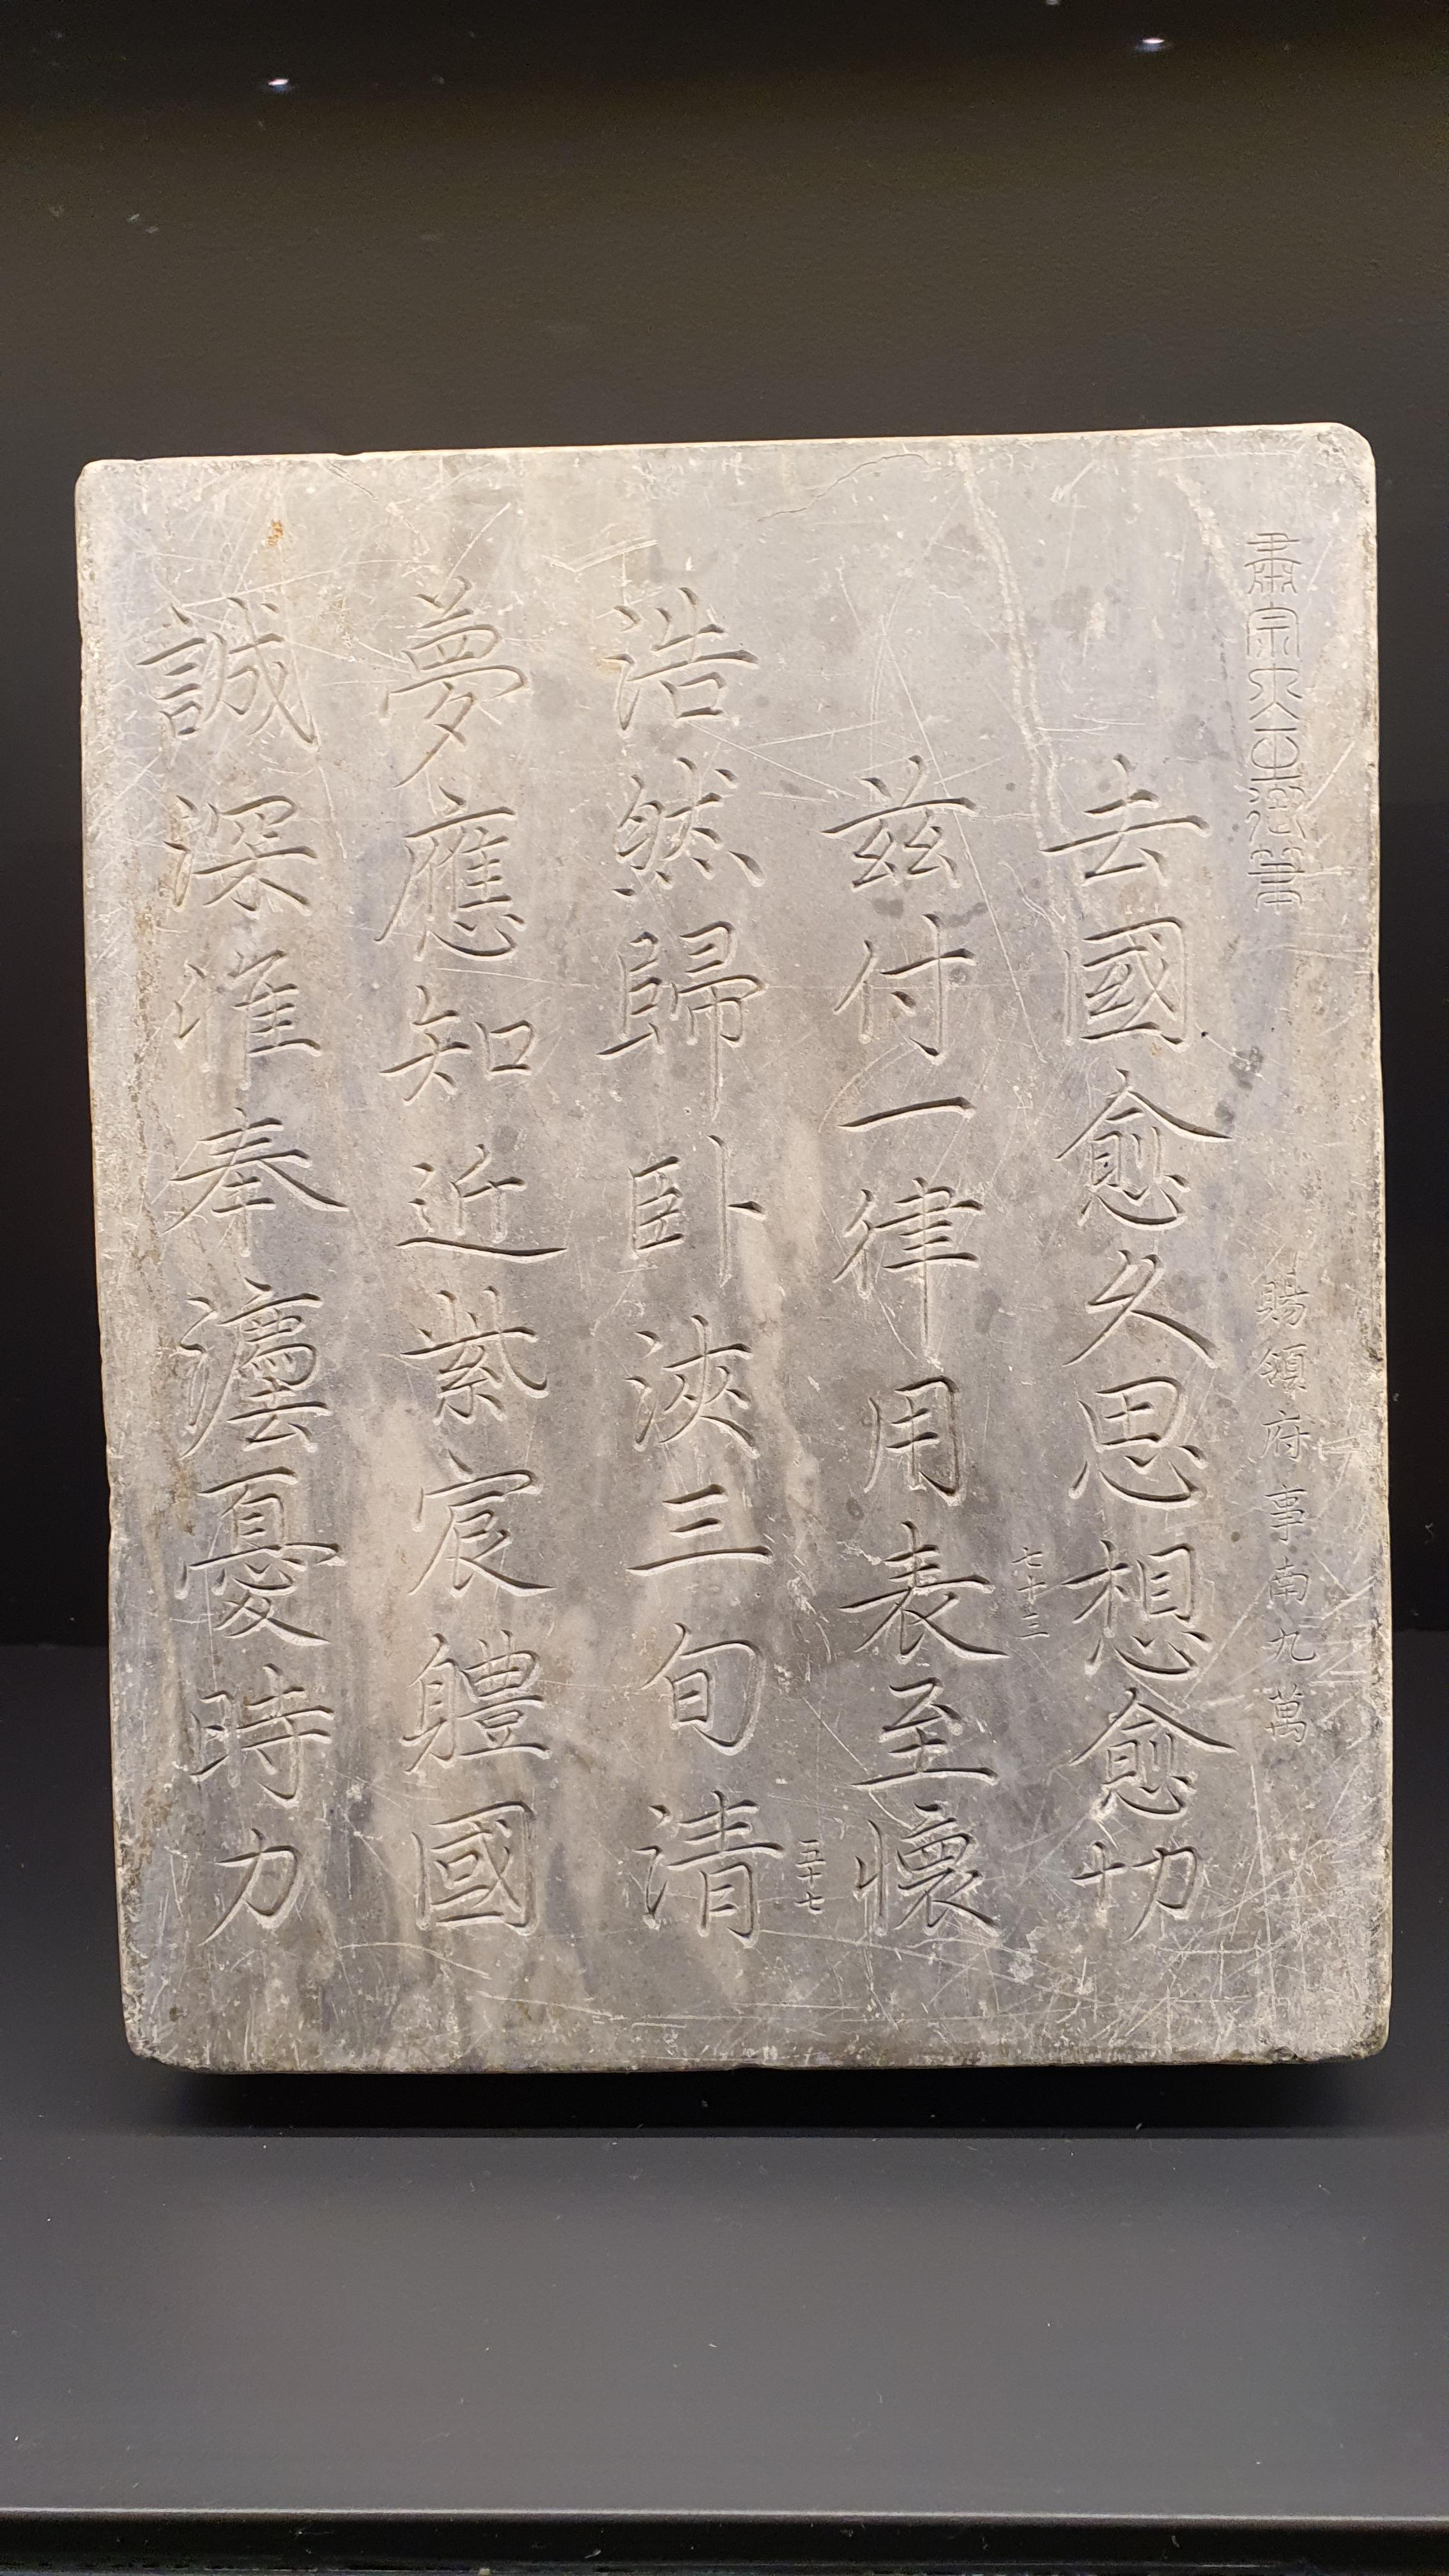 肅宗大王御筆 賜領府事南九萬
去國愈久思想愈切
七十三
兹付一律用表至懷
五十七
浩然歸卧浹三旬清
夢應知近紫宸軆國
誠深淮奉灋憂時力